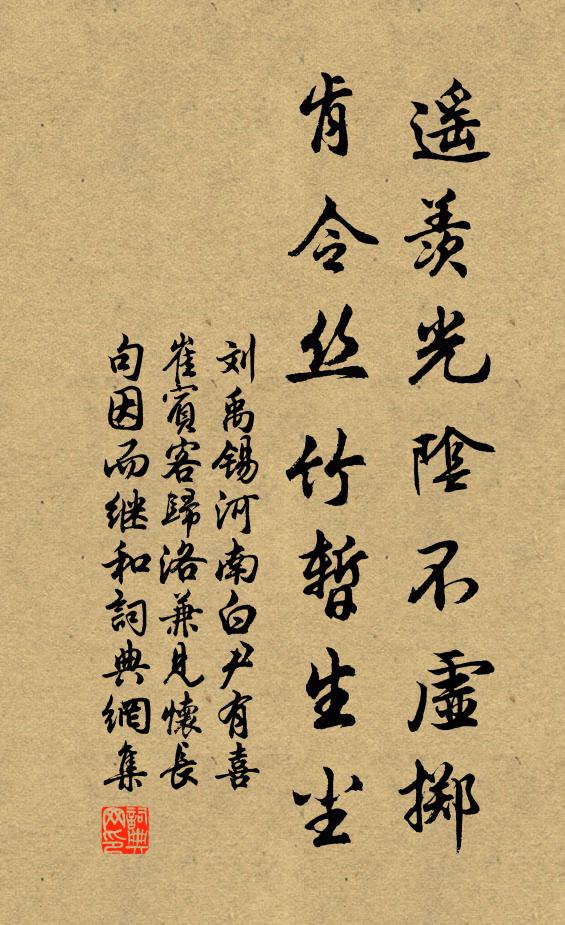 遥羡光陰不虛擲
肯令丝竹暫生尘
刘禹锡河南白尹有喜
崔賓客歸洛兼见懷長
句因而继和詞典網集
詞典
网印